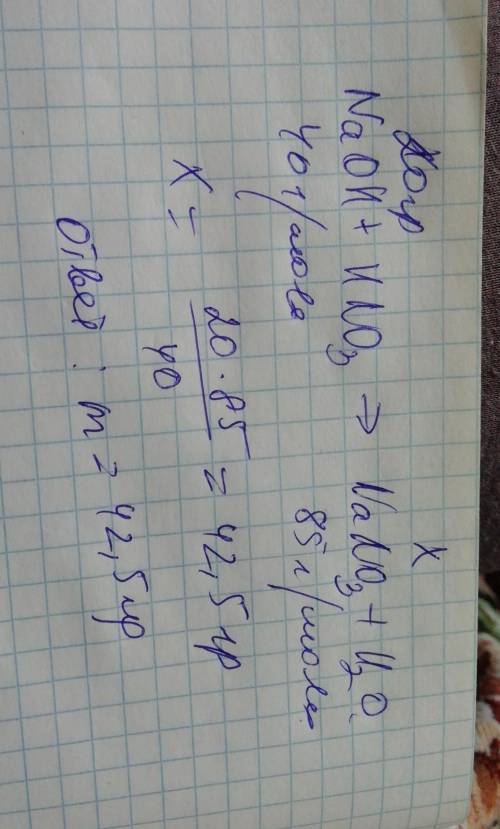 20 гр X
NaOH + HNO3 → NaNO3 + H2O
40 г/моль 85 г/моль
X = 20 · 85 / 40 = 42,5 гр
Ответ: m = 42,5 гр